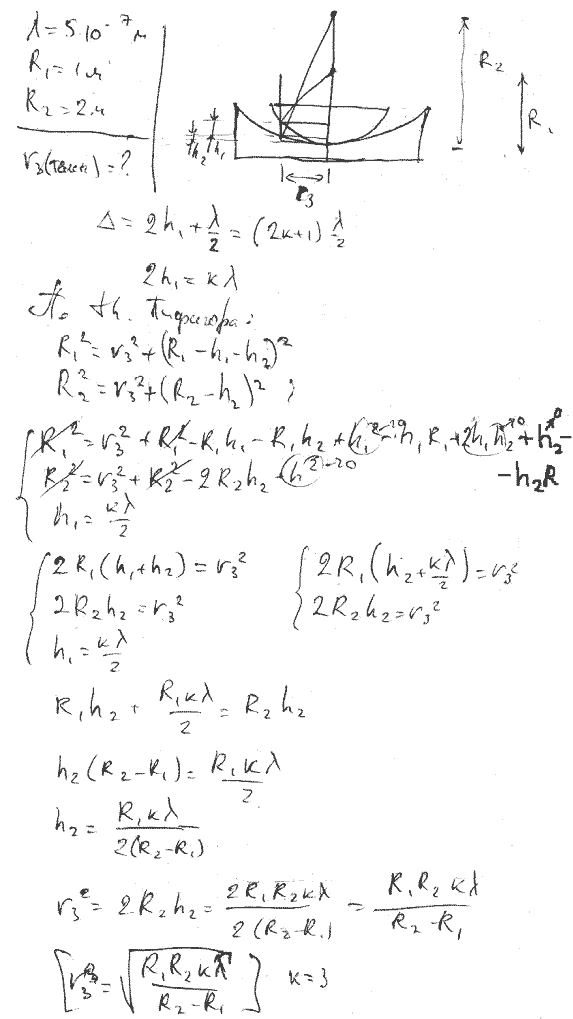 λ = 5·10⁻⁷ м
R₁ = 1 м
R₂ = 2 м
r₃(темн) = ?
R₂
R₁
h₂ h₁
r₃
Δ = 2h₁ + λ/2 = (2k+1) λ/2
2h₁ = kλ
По th. Пифагора:
R₁² = r₃² + (R₁ - h₁ - h₂)²
R₂² = r₃² + (R₂ - h₂)² ;
R₁² = r₃² + R₁² - R₁h₁ - R₁h₂ + h₁²→0 - h₁R₁ + 2h₁h₂→0 + h₂²→0 -
- h₂R
R₂² = r₃² + R₂² - 2R₂h₂ + h²→0
h₁ = kλ/2
2R₁(h₁+h₂) = r₃²
2R₂h₂ = r₃²
h₁ = kλ/2
2R₁(h₂ + kλ/2) = r₃²
2R₂h₂ = r₃²
R₁h₂ + R₁kλ/2 = R₂h₂
h₂(R₂-R₁) = R₁kλ/2
h₂ = R₁kλ/2(R₂-R₁)
r₃² = 2R₂h₂ = 2R₁R₂kλ/2(R₂-R₁) = R₁R₂kλ/R₂-R₁
[r₃ = √R₁R₂kλ/R₂-R₁] k=3